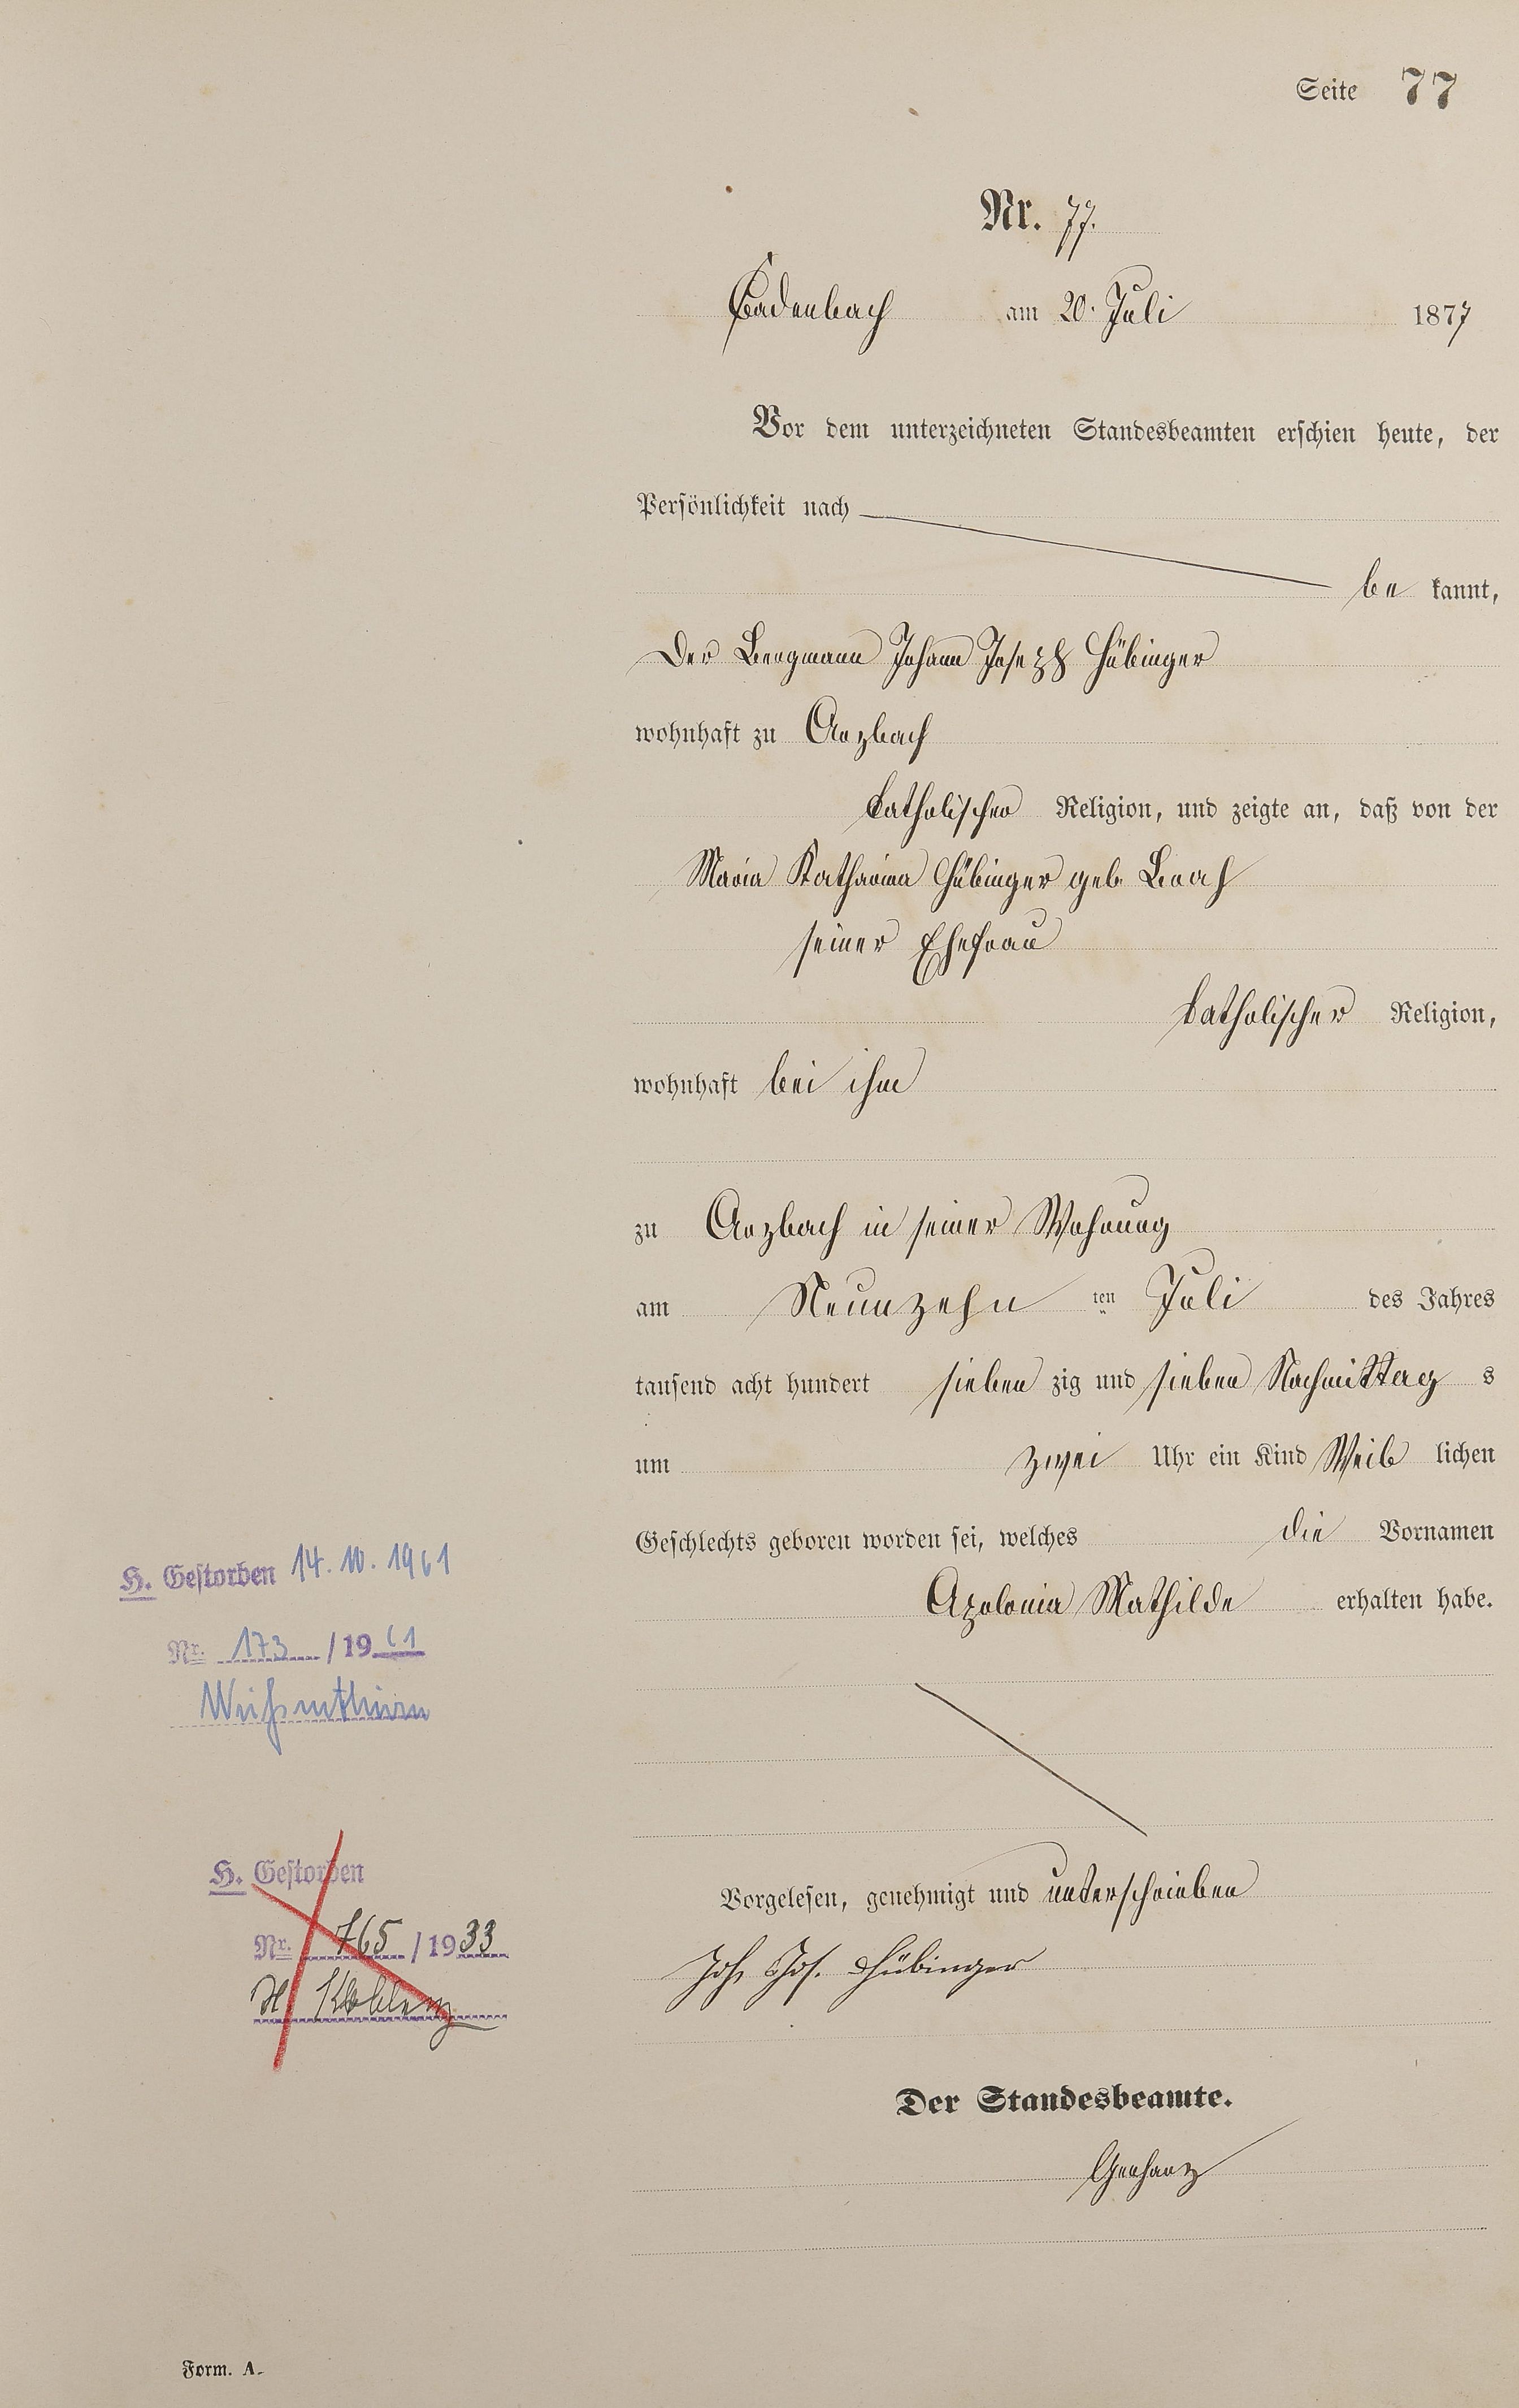 Seite 77
Nr. 77.
Cadenbach am 20. Juli 1877
Vor dem unterzeichneten Standesbeamten erschien heute, der
Persönlichkeit nach
be kannt,
Der Bergmann Johann Joseph Hübinger
wohnhaft zu Arzbach
katholischer Religion, und zeigte an, daß von der
Maria Katharina Hübinger geb.
seiner Ehefrau
katholischer Religion,
wohnhaft bei ihm
zu Arzbach in seiner Wohnung
am Neunzehn ten Juli des Jahres
tausend acht hundert sieben zig und sieben Nachmittag s
um zwei Uhr ein Kind Weib lichen
Geschlechts geboren worden sei, welches die Vornamen
Apolonia Mathilde erhalten habe.
H. Gestorben 14. 10. 1961
Nr. 173 / 1961
Weißenthurm
Vorgelesen, genehmigt und unterschrieben
Joh. Jos. Hübinger
H. Gestorben
Nr. 765 / 1933
Koblenz
Der Standesbeamte.
Gerharz
Form. A.